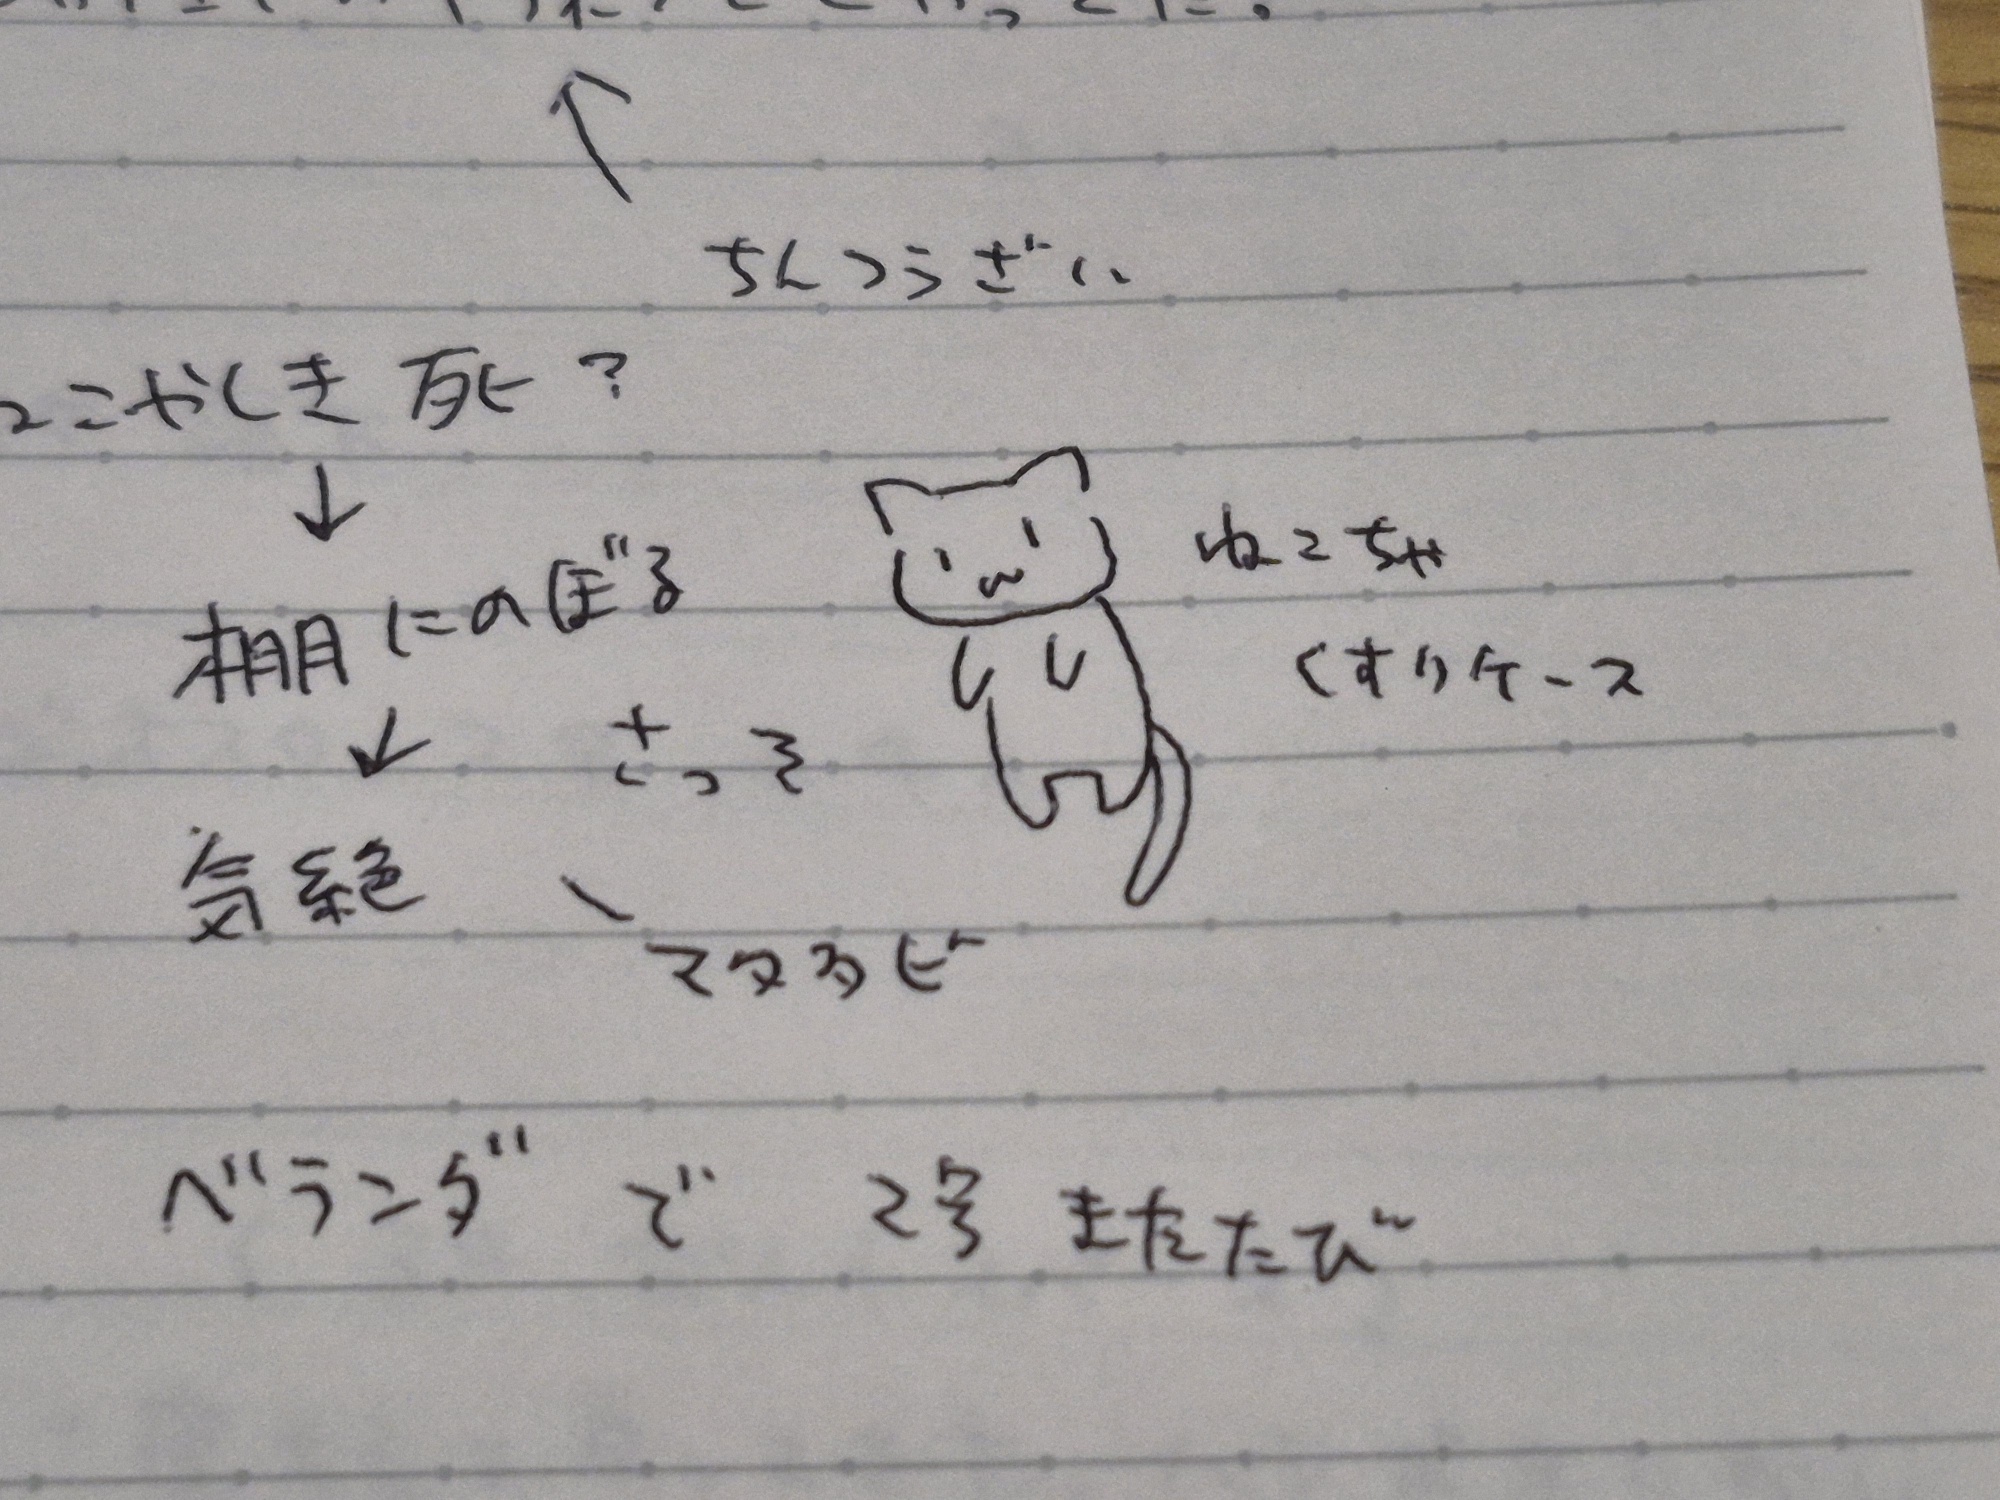 ちんつうざい
ねこやしき 死?
ねこちゃ
棚にのぼる
くすりケース
さっき
気絶
マタタビ
ベランダ で まだ またたび